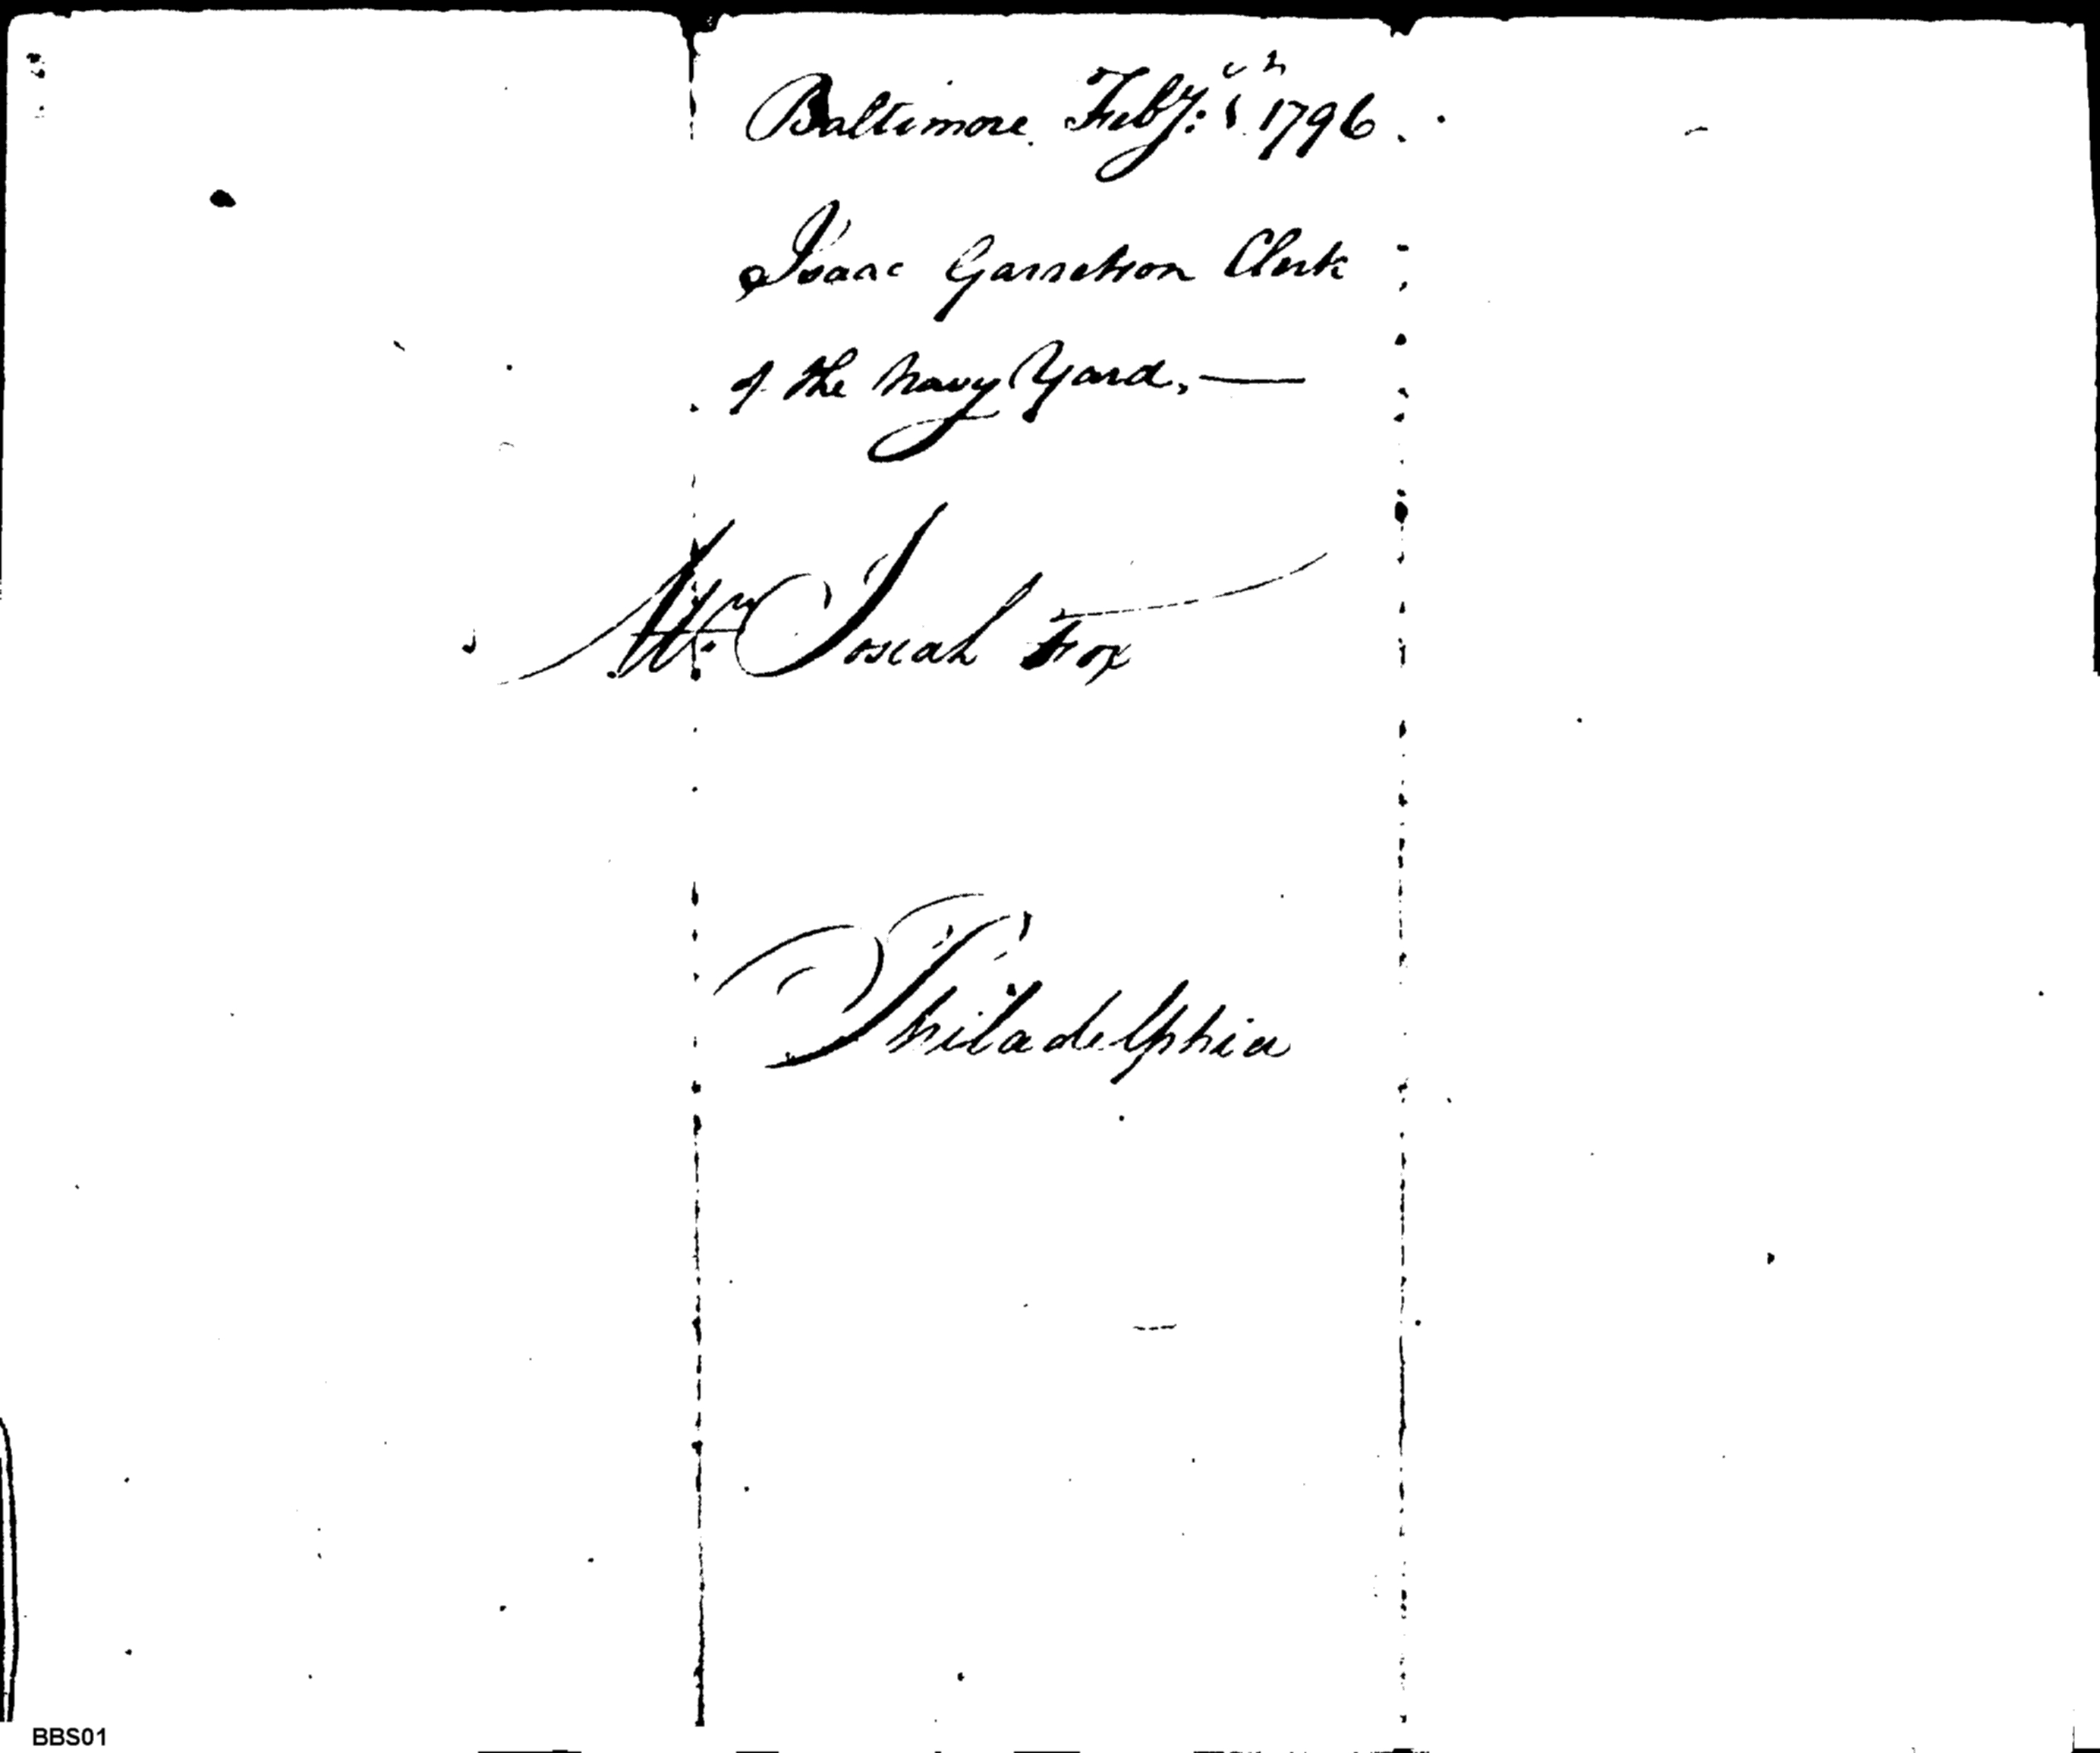 Baltimore Feby: 1796
Isaac Garretson Clerk
of the Navy Yard,—
Mr. Josiah Fox
Philadelphia
BBS01